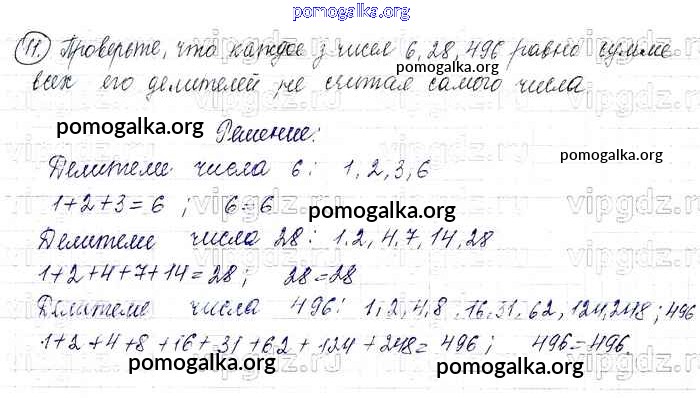 pomogalka.org
11. Проверьте, что каждое з чисел 6, 28, 496 равно сумме
всех его делителей, не считая самого числа
pomogalka.org
pomogalka.org
Решение:
pomogalka.org
Делители числа 6: 1, 2, 3, 6
1+2+3=6 ; 6=6
pomogalka.org
Делители числа 28: 1.2, 4.7, 14, 28
1+2+4+7+14=28 ; 28=28
pomogalka.org
Делители числа 496: 1, 2, 4, 8, 16, 31, 62, 124, 248 ; 496
1+2+4+8+16+31+62+124+248=496 ; 496=496.
pomogalka.org
pomogalka.org
vipgdz.ru vipgdz.ru vipgdz.ru